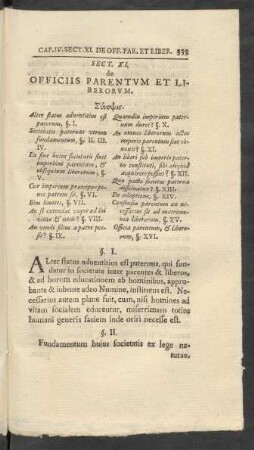 CAP. IV. SECT. XI. DE OFF. PAR. ET LIBER. 539
SECT. XI.
de
OFFICIIS PARENTVM ET LI-
BERORVM.
Σύνοψις.
Alter status adventitius est
paternus, §. I.
Societatis paternae verum
fundamentum, §. II. III.
IV.
Ex fine huius societatis fluit
imperium parentum, &
obsequium liberorum, §.
V.
Cur imperium praecipue pe-
nes patrem sit, §. VI.
Eius limites, §. VII.
An se extendat usque ad ius
vitae & necis? §. VIII.
An vendi filius a patre pos-
sit? §. IX.
Quamdiu imperium pater-
num duret? §. X.
An omnes liberorum actus
imperio parentum sint ob-
noxii? §. XI.
An liberi sub imperio paren-
tum constituti, sibi aliquid
acquirere possint? §. XII.
Quo pacto societas paterna
dissolvatur? §. XIII.
De adoptione, §. XIV.
Consensus parentum an ne-
cessarius sit ad matrimo-
nia liberorum, §. XV.
Officia parentum, & libero-
rum, §. XVI.
§. I.
ALter status adventitius est paternus, qui fun-
datur in societate inter parentes & liberos,
& ad horum educationem ab hominibus, appro-
bante & iubente adeo Numine, institutus est. Ne-
cessarius autem plane fuit, cum, nisi homines ad
vitam socialem educentur, miserrimam totius
humani generis faciem inde oriri necesse est.
§. II
Fundamentum huius societatis ex lege na-
turae,